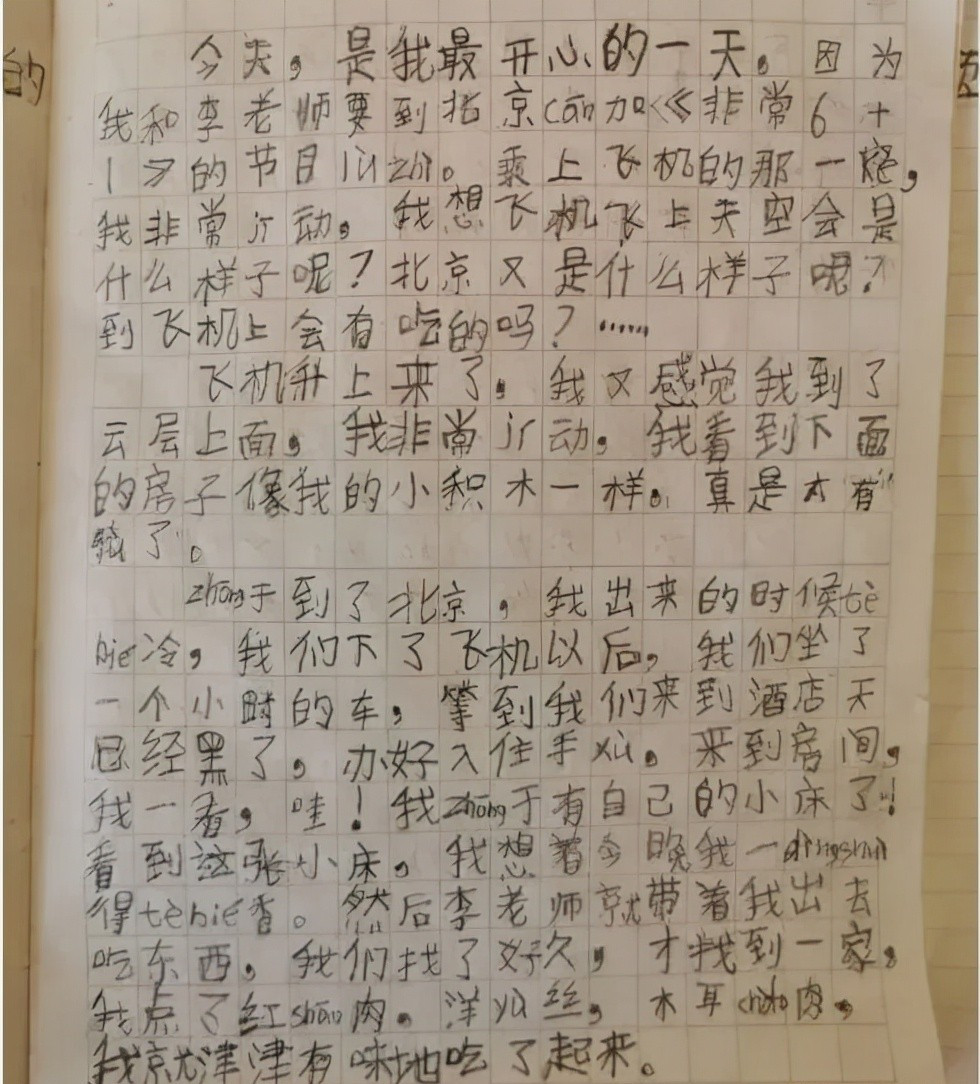 今天，是我最开心的一天。因为
我和李老师要到北京cān加《非常6+
1》的节目lù zhì。乘上飞机的那一刻，
我非常jī动。我想飞机飞上天空会是
什么样子呢？北京又是什么样子呢？
到飞机上会有吃的吗？……
飞机升上来了。我又感觉我到了
云层上面。我非常jī动。我看到下面
的房子像我的小积木一样。真是太有
了。
zhōng于到了北京，我出来的时候tè
bié冷，我们下了飞机以后，我们坐了
一个小时的车，等到我们来到酒店天
已经黑了，办好入住手xù。来到房间，
我一看，哇！我zhōng于有自己的小床了！
看到这张小床，我想着今晚我一dìngshuì
得tèbié香。然后李老师就带着我出去
吃东西。我们找了好久，才找到一家。
我点了红shāo肉。洋yù丝，木耳chǎo肉，
我就津津有味地吃了起来。